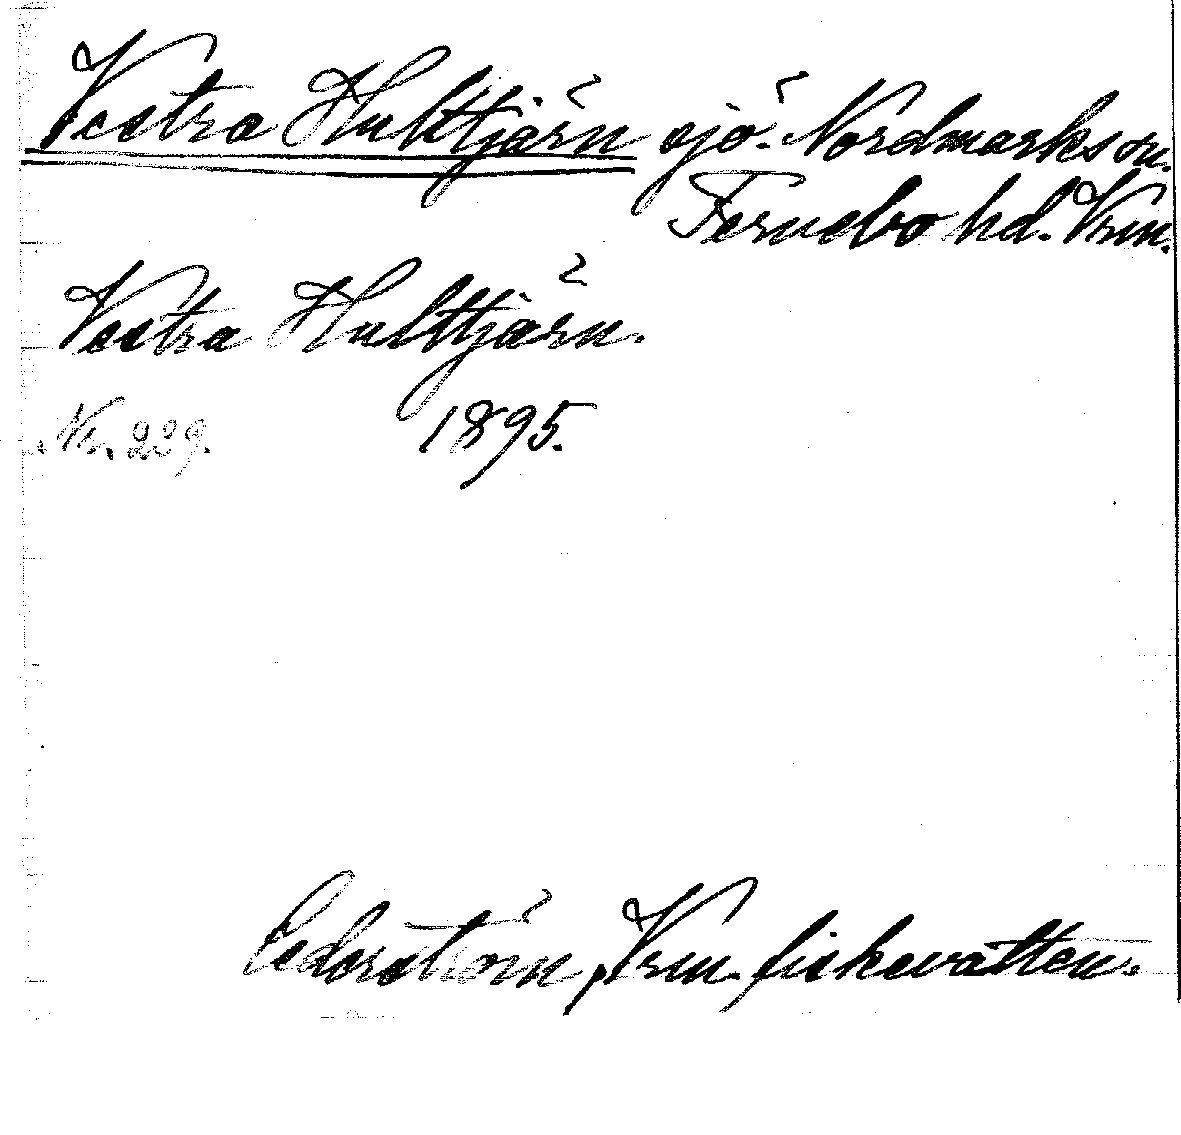 Vestra Hulttjärn sjö. Nordmarks sn.
Fernebo hd. Vrm.
Vestra Hulttjärn.
Nr. 229. 1895.
Cederström, Vrm. fiskevatten.